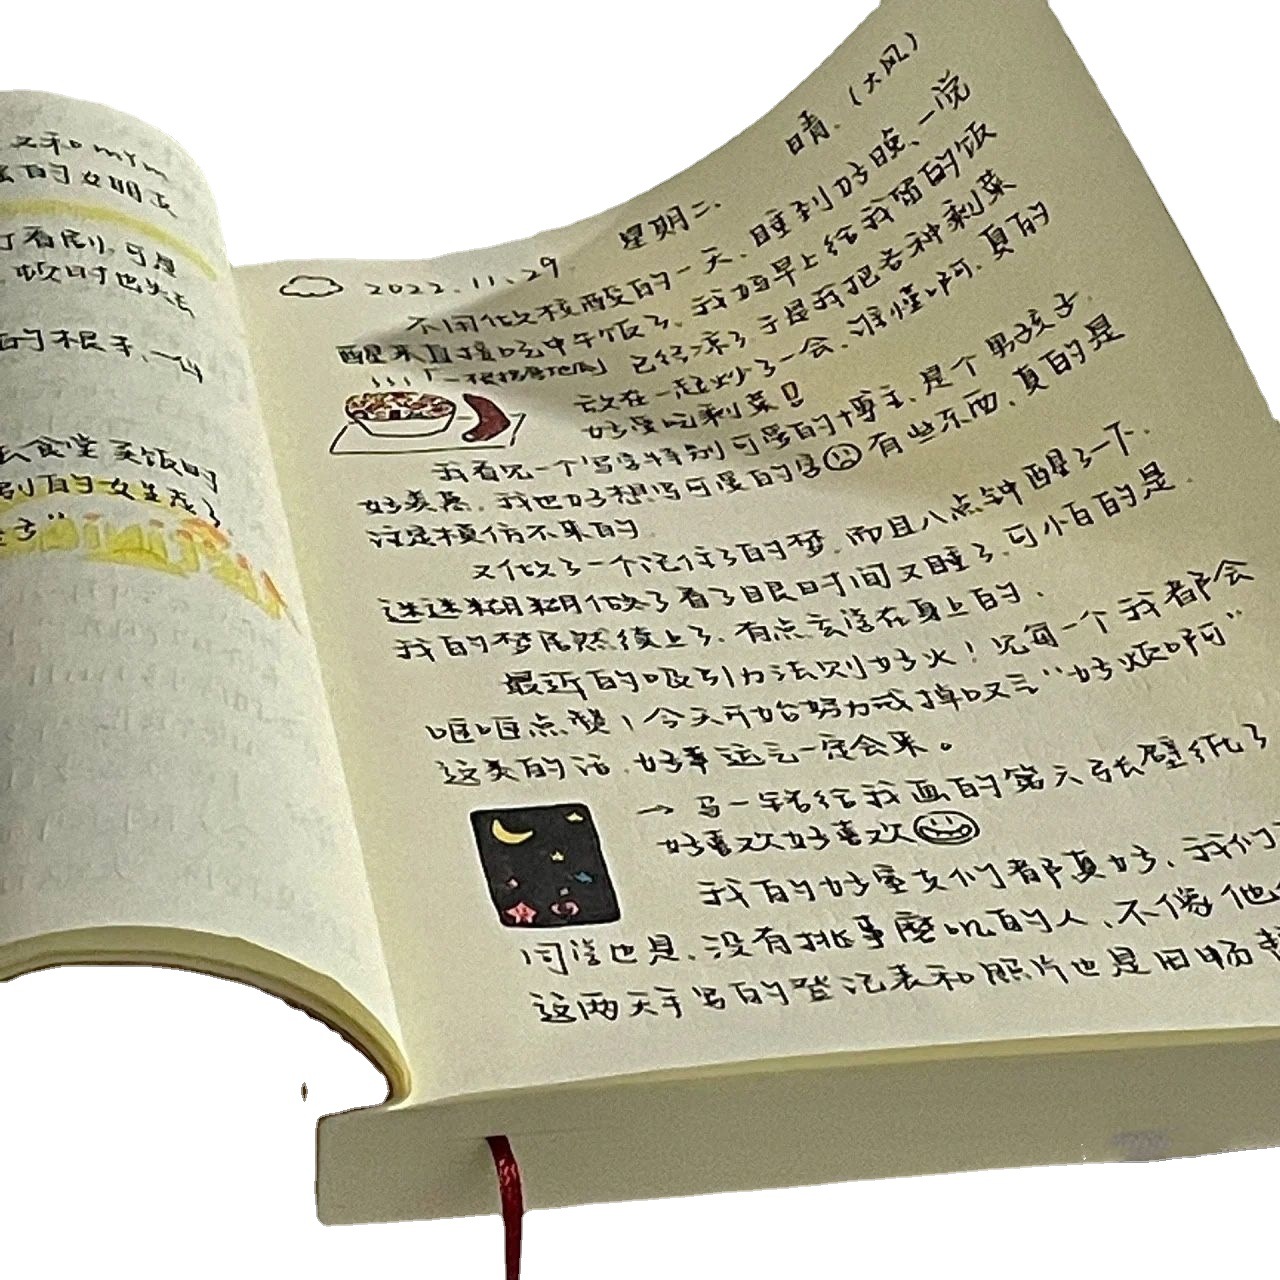 又和mym
的女朋友
看剧,可是
的根手、一仙
去食堂买饭的
别的女生死了
2022.11.29. 星期二. 晴.(大风)
不用做核酸的一天. 睡到好晚、一觉
醒来直接吃中午饭了. 我妈早上给我留的饭
「一根烤地瓜」 已经凉了于是我把各种剩菜
放在一起炒了一会. 谁懂啊. 真的
好爱吃剩菜!!
我看见一个写字特别可爱的博主. 是个男孩子.
好羡慕. 我也好想写可爱的字 有些东西. 真的是
注定模仿不来的.
又做了一个记住了的梦. 而且八点钟醒了一下.
迷迷糊糊做了看了眼时间又睡了. 可怕的是.
我的梦居然续上了. 有点玄学在身上的.
最近的吸引力法则好火! 见每一个我都会
哐哐点赞! 今天开始努力戒掉叹气“好烦啊”
这类的话. 好幸运气一定会来。
→ 马一年给我画的第六张壁纸了
好喜欢好喜欢
我的好室友们都真好. 我们
同学也是. 没有挑事磨叽的人、不像他
这两天手写的登记表和照片也是旧杨